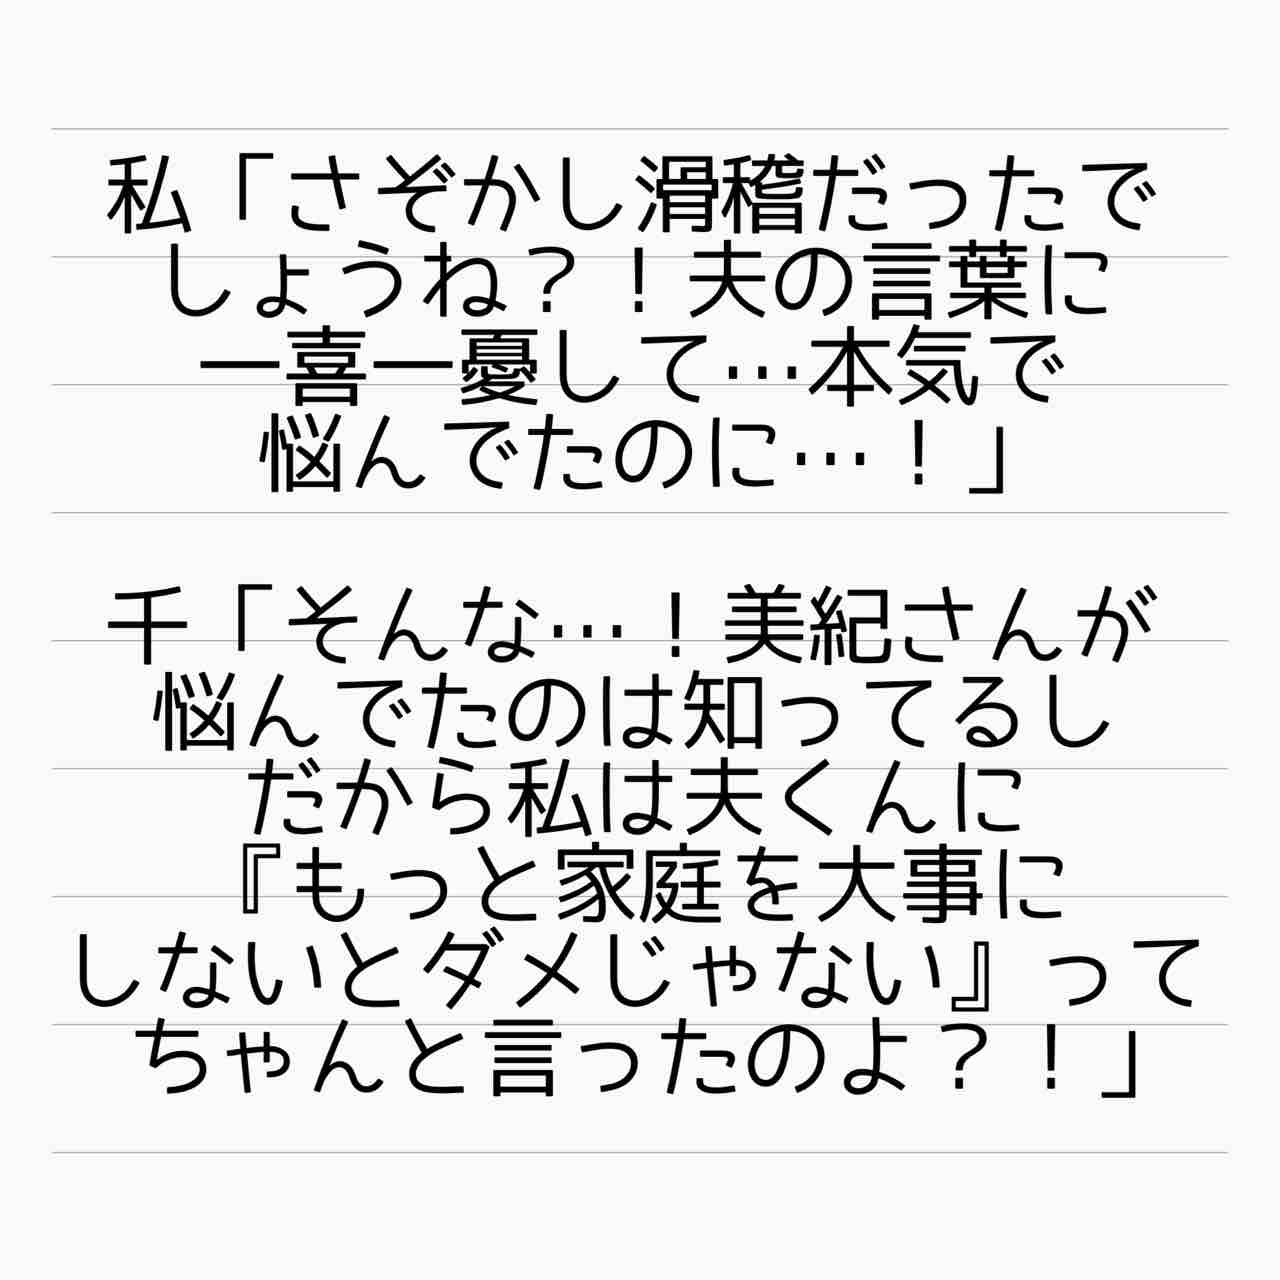 私「さぞかし滑稽だったで
しょうね？！夫の言葉に
一喜一憂して…本気で
悩んでたのに…！」
千「そんな…！美紀さんが
悩んでたのは知ってるし
だから私は夫くんに
『もっと家庭を大事に
しないとダメじゃない』って
ちゃんと言ったのよ？！」